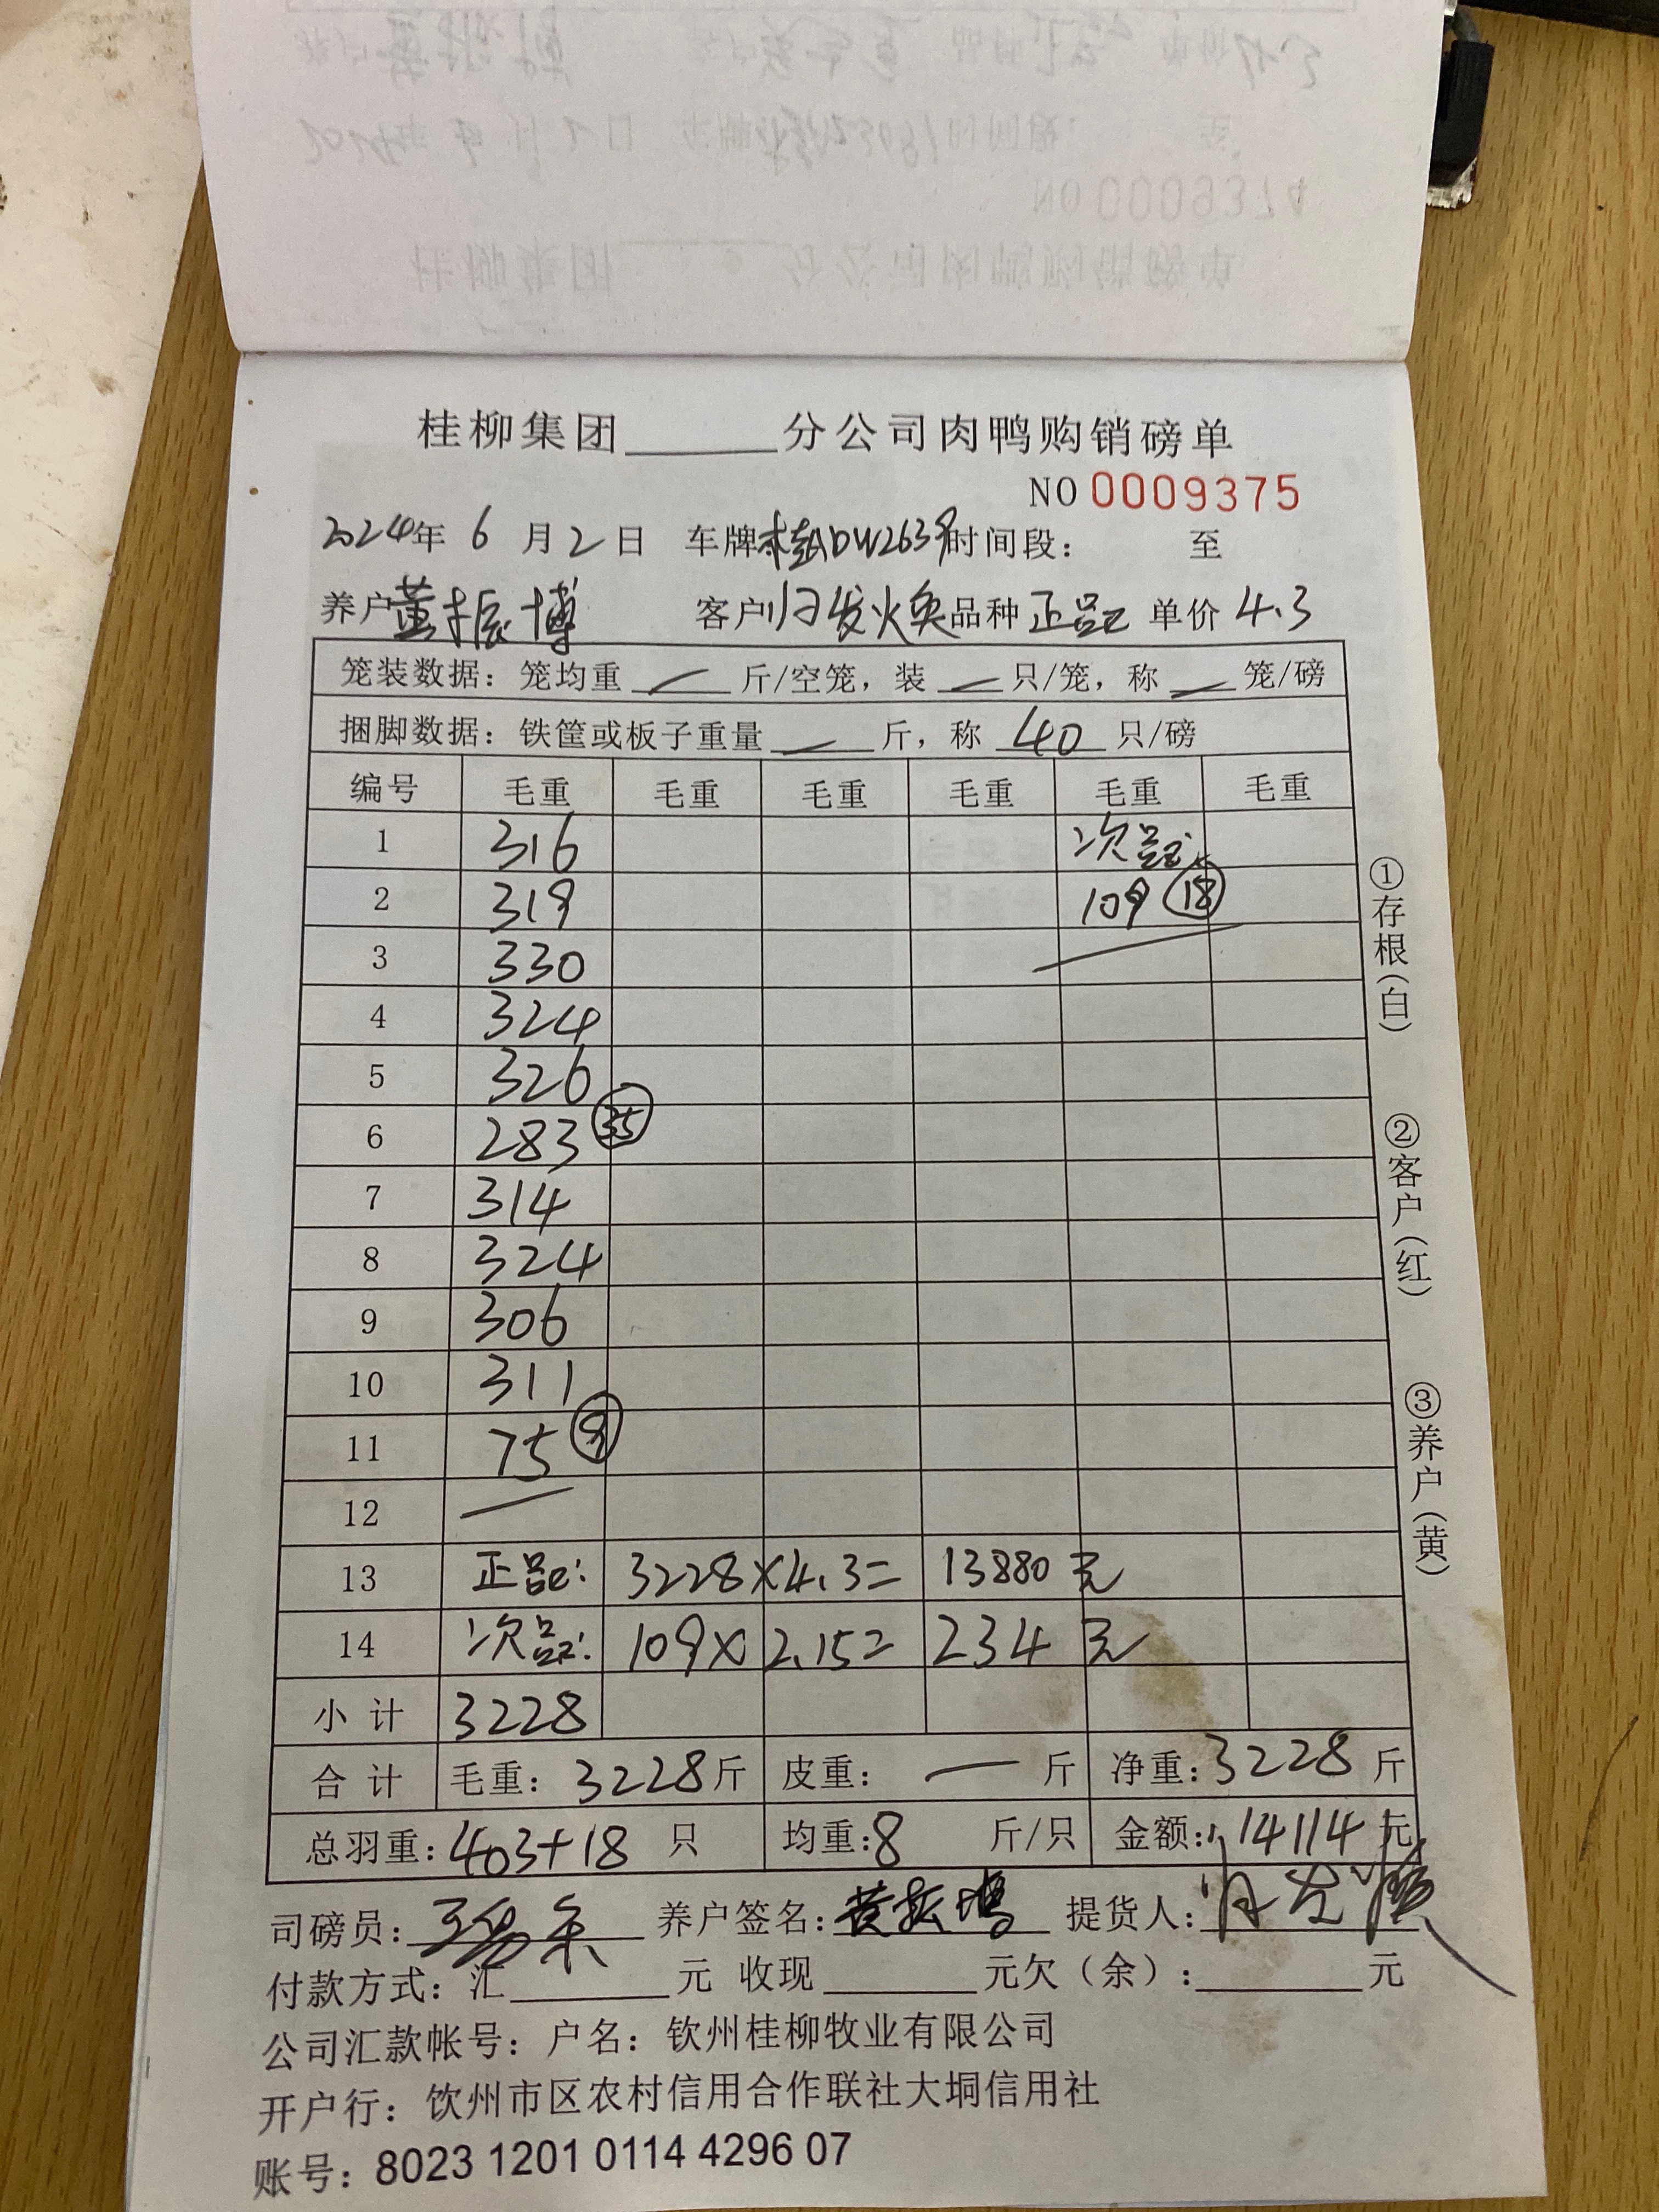 桂柳集团______分公司肉鸭购销磅单
NO 0009375
2024年 6 月 2 日 车牌桂ADW2639时间段： 至
养户 振博 客户 发焕 品种 正品 单价 4.3
笼装数据：笼均重 — 斤/空笼，装 — 只/笼，称 — 笼/磅
捆脚数据：铁筐或板子重量 — 斤，称 40 只/磅
编号 毛重 毛重 毛重 毛重 毛重 毛重
1 316 次品:
2 319 109 18
3 330
4 324
5 326
6 283 35
7 314
8 324
9 306
10 311
11 75
12
13 正品: 3228×4.3= 13880 元
14 次品: 109× 2.15= 234 元
小 计 3228
合 计 毛重: 3228斤 皮重: — 斤 净重: 3228 斤
总羽重: 403+18 只 均重:8 斤/只 金额: 14114 元
司磅员: 养户签名: 提货人:
付款方式: 汇______元 收现______元欠（余）:______元
公司汇款帐号: 户名: 钦州桂柳牧业有限公司
开户行: 钦州市区农村信用合作联社大垌信用社
账号: 8023 1201 0114 4296 07
①存根(白)
②客户(红)
③养户(黄)